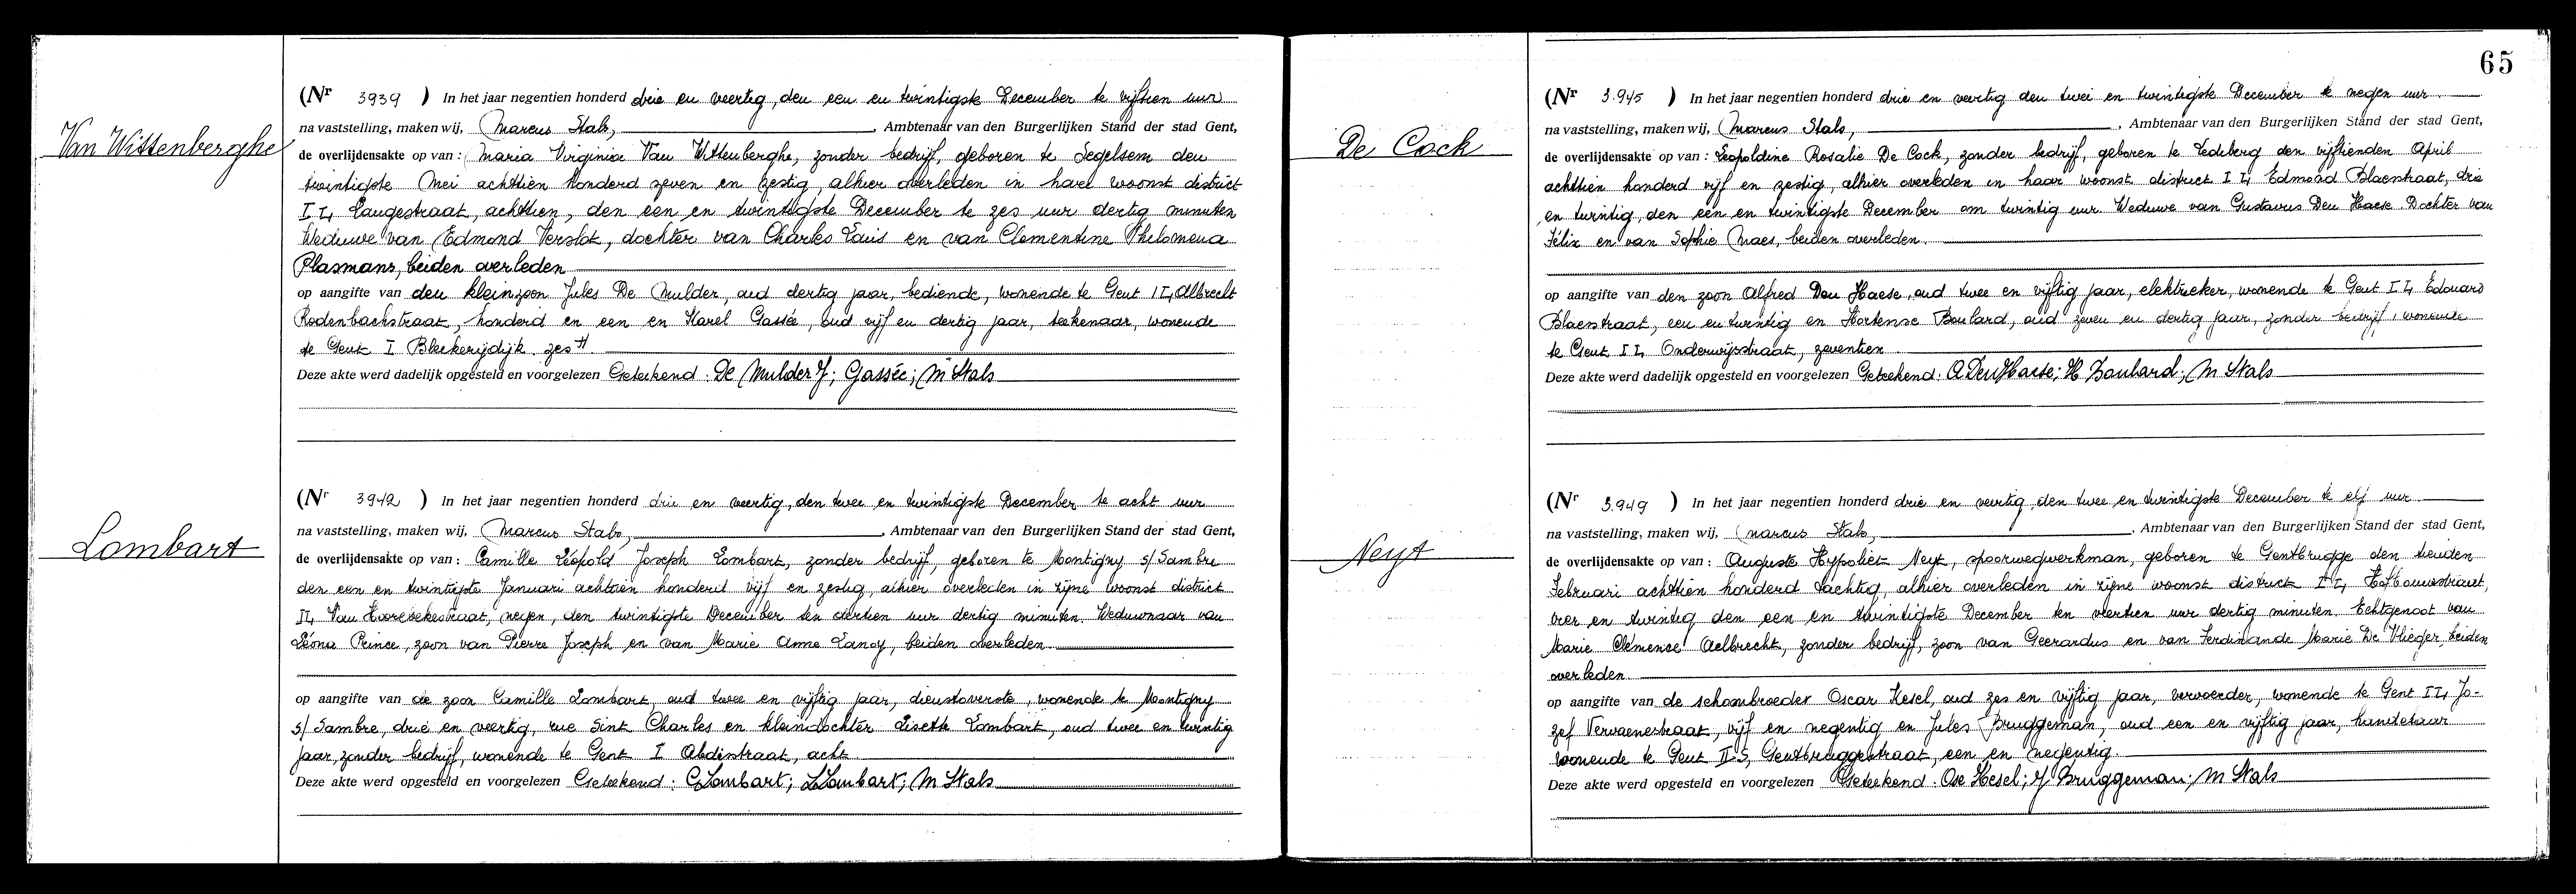 Van Wittenberghe
(Nr 3939 ) In het jaar negentien honderd drie en veertig, den een en twintigste December te vijftien uur
na vaststelling, maken wij, Marcus Stals, , Ambtenaar van den Burgerlijken Stand der stad Gent,
de overlijdensakte op van : Maria Virginia Van Wittenberghe, zonder bedrijf, geboren te Segelsem den
twintigste Mei achttien honderd zeven en zestig, alhier overleden in haar woonst district
I I, Langestraat, achttien, den een en twintigste December te zes uur dertig minuten
Weduwe van Edmond Verslot, dochter van Charles Louis en van Clementine Philomena
Plasmans, beiden overleden
op aangifte van den kleinzoon Jules De Mulder, oud dertig jaar, bediende, wonende te Gent I I, Albrecht
Rodenbachstraat, honderd en een en Karel Gassée, oud vijf en dertig jaar, teekenaar, wonende
te Gent I Bleekerijdijk zes
Deze akte werd dadelijk opgesteld en voorgelezen Geteekend : De Mulder J; Gassée; M Stals
Lombart
(Nr 3942 ) In het jaar negentien honderd drie en veertig, den twee en twintigste December te acht uur
na vaststelling, maken wij, Marcus Stals, , Ambtenaar van den Burgerlijken Stand der stad Gent,
de overlijdensakte op van : Camille Léopold Joseph Lombart, zonder bedrijf, geboren te Montigny s/Sambre
den een en twintigste Januari achttien honderd vijf en zestig, alhier overleden in zijne woonst district
II, Van Hoorebekestraat, negen, den twintigste December ten dertien uur dertig minuten. Weduwnaar van
Léonie Prince, zoon van Pierre Joseph en van Marie Anne Lanoy, beiden overleden
op aangifte van de zoon Camille Lombart, oud twee en vijftig jaar, dienstoverste, wonende te Montigny
s/Sambre, drie en veertig, rue Sint Charles en kleindochter Lisette Lombart, oud twee en twintig
jaar, zonder bedrijf, wonende te Gent I Abdistraat, acht
Deze akte werd opgesteld en voorgelezen Geteekend : C Lombart; L Lombart; M Stals
65
De Cock
(Nr 3.945 ) In het jaar negentien honderd drie en veertig den twei en twintigste December te negen uur
na vaststelling, maken wij, Marcus Stals, , Ambtenaar van den Burgerlijken Stand der stad Gent,
de overlijdensakte op van : Leopoldine Rosalie De Cock, zonder bedrijf, geboren te Ledeberg den vijftienden April
achttien honderd vijf en zestig, alhier overleden in haar woonst district I I, Edmond Blaestraat, drie
en twintig, den een en twintigste December om twintig uur Weduwe van Gustavus Den Haese. Dochter van
Félix en van Sophie Maes, beiden overleden.
op aangifte van den zoon Alfred Den Haese, oud twee en vijftig jaar, elektrieker, wonende te Gent I I, Edouard
Blaestraat, een en twintig en Hortense Boulard, oud zeven en dertig jaar, zonder bedrijf, wonende
te Gent I I, Onderwijsstraat, zeventien
Deze akte werd dadelijk opgesteld en voorgelezen Geteekend : A Den Haese; H Boulard; M Stals
Neyt
(Nr 3.949 ) In het jaar negentien honderd drie en veertig, den twee en twintigste December te elf uur
na vaststelling, maken wij, Marcus Stals, , Ambtenaar van den Burgerlijken Stand der stad Gent,
de overlijdensakte op van : Auguste Hypoliet Neyt, spoorwegwerkman, geboren te Gentbrugge den tienden
Februari achttien honderd tachtig, alhier overleden in zijne woonst district I I, Hofbouwstraat,
vier en twintig den een en twintigste December ten veertien uur dertig minuten. Echtgenoot van
Marie Clémence Aelbrecht, zonder bedrijf, zoon van Geerardus en van Ferdinande Marie De Vlieger, beiden
overleden.
op aangifte van de schoonbroeder Oscar Hesel, oud zes en vijftig jaar, vervoerder, wonende te Gent I I, Jo-
zef Vervaenestraat, vijf en negentig en Jules Bruggeman, oud een en vijftig jaar, handelaar
wonende te Gent II S, Gentbruggestraat, een en negentig.
Deze akte werd opgesteld en voorgelezen Geteekend : Osc Hesel; J Bruggeman; M Stals